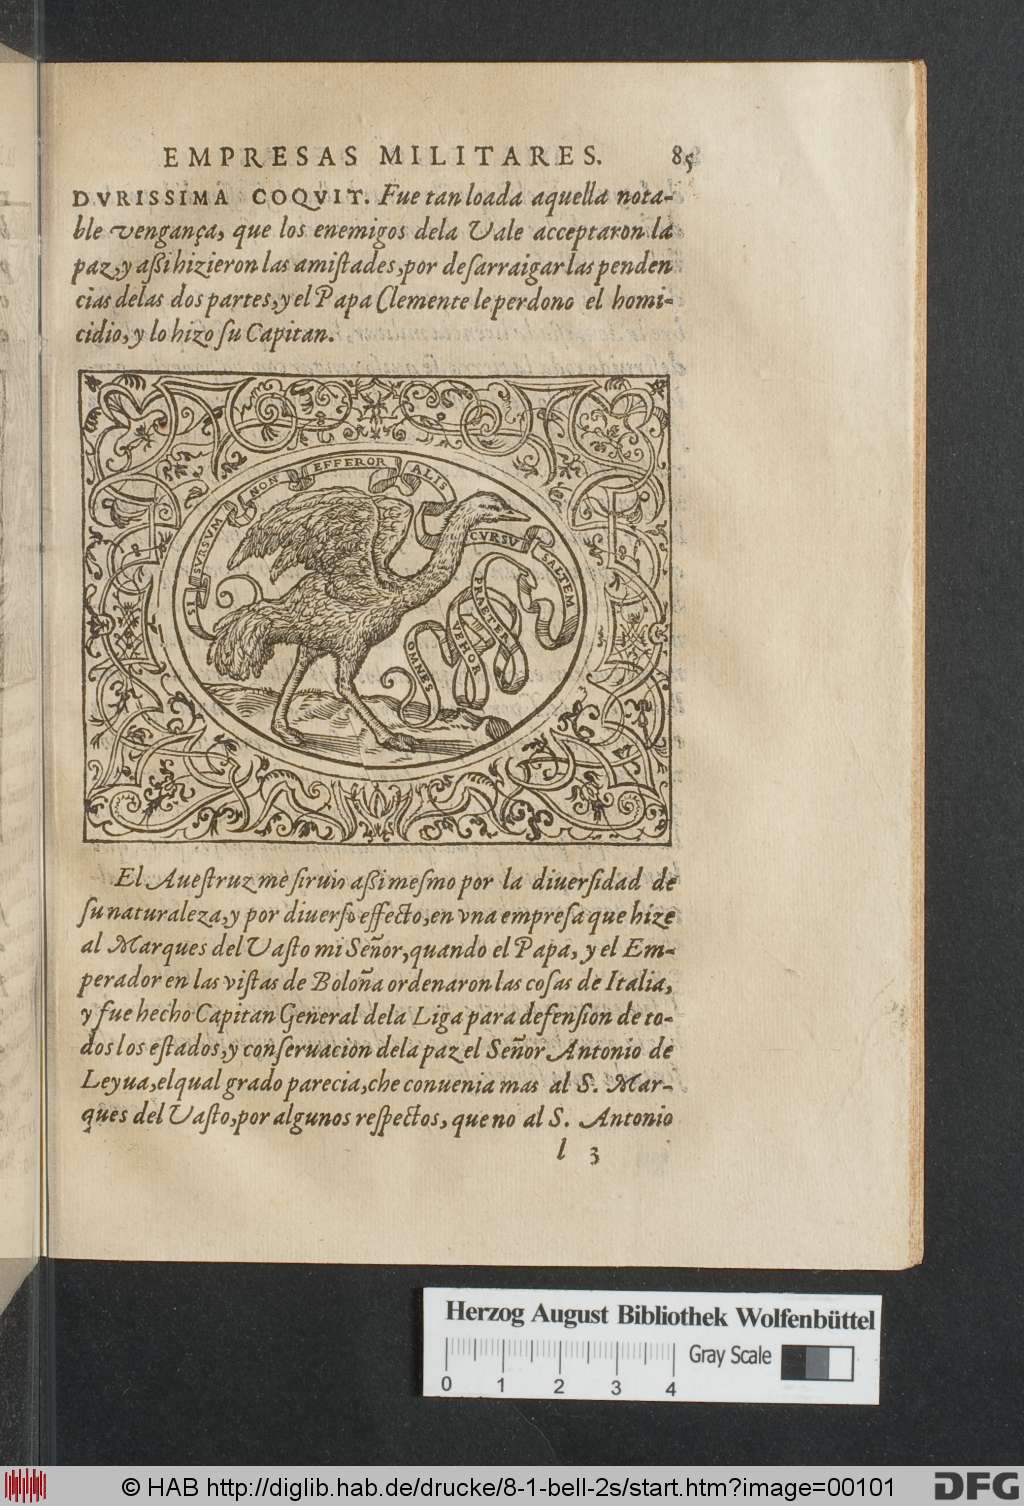 EMPRESAS MILITARES. 85
DVRISSIMA COQVIT. Fue tan loada aquella nota-
ble vengança, que los enemigos dela Vale acceptaron la
paz, y aßi hizieron las amiſtades, por deſarraigar las penden
cias delas dos partes, y el Papa Clemente le perdono el homi-
cidio, y lo hizo ſu Capitan.
SI SVRSVM NON EFFEROR ALIS
CVRSV SALTEM
PRAETER
VEHOR
OMNES
El Aueſtruz me ſiruio aßi meſmo por la diuerſidad de
ſu naturaleza, y por diuerſo effecto, en vna empreſa que hize
al Marques del Vaſto mi Señor, quando el Papa, y el Em-
perador en las viſtas de Boloña ordenaron las coſas de Italia,
y fue hecho Capitan General dela Liga para defenſion de to-
dos los eſtados, y conſeruacion dela paz el Señor Antonio de
Leyua, elqual grado parecia, che conuenia mas al S. Mar-
ques del Vaſto, por algunos reſpectos, que no al S. Antonio
l 3
Herzog August Bibliothek Wolfenbüttel
Gray Scale
0 1 2 3 4
© HAB http://diglib.hab.de/drucke/8-1-bell-2s/start.htm?image=00101
DFG